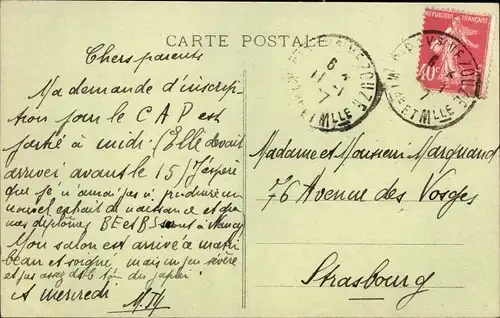 CARTE POSTALE
RÉPUBLIQUE FRANÇAISE
40c
Chers parents
Ma demande d'inscrip-
tion pour le C A P est
partie à midi. (Elle devait
arriver avant le 15) J'espère
que je n'aurai pas à produire un
nouvel extrait de naissance et que
mes diplômes BE et BS sont à Nancy
Mon salon est arrivé à matin
beau et soigné mais un peu sévère
et pas assez de la du papier
A mercredi
Madame et Monsieur Marquand
76 Avenue des Vosges
Strasbourg